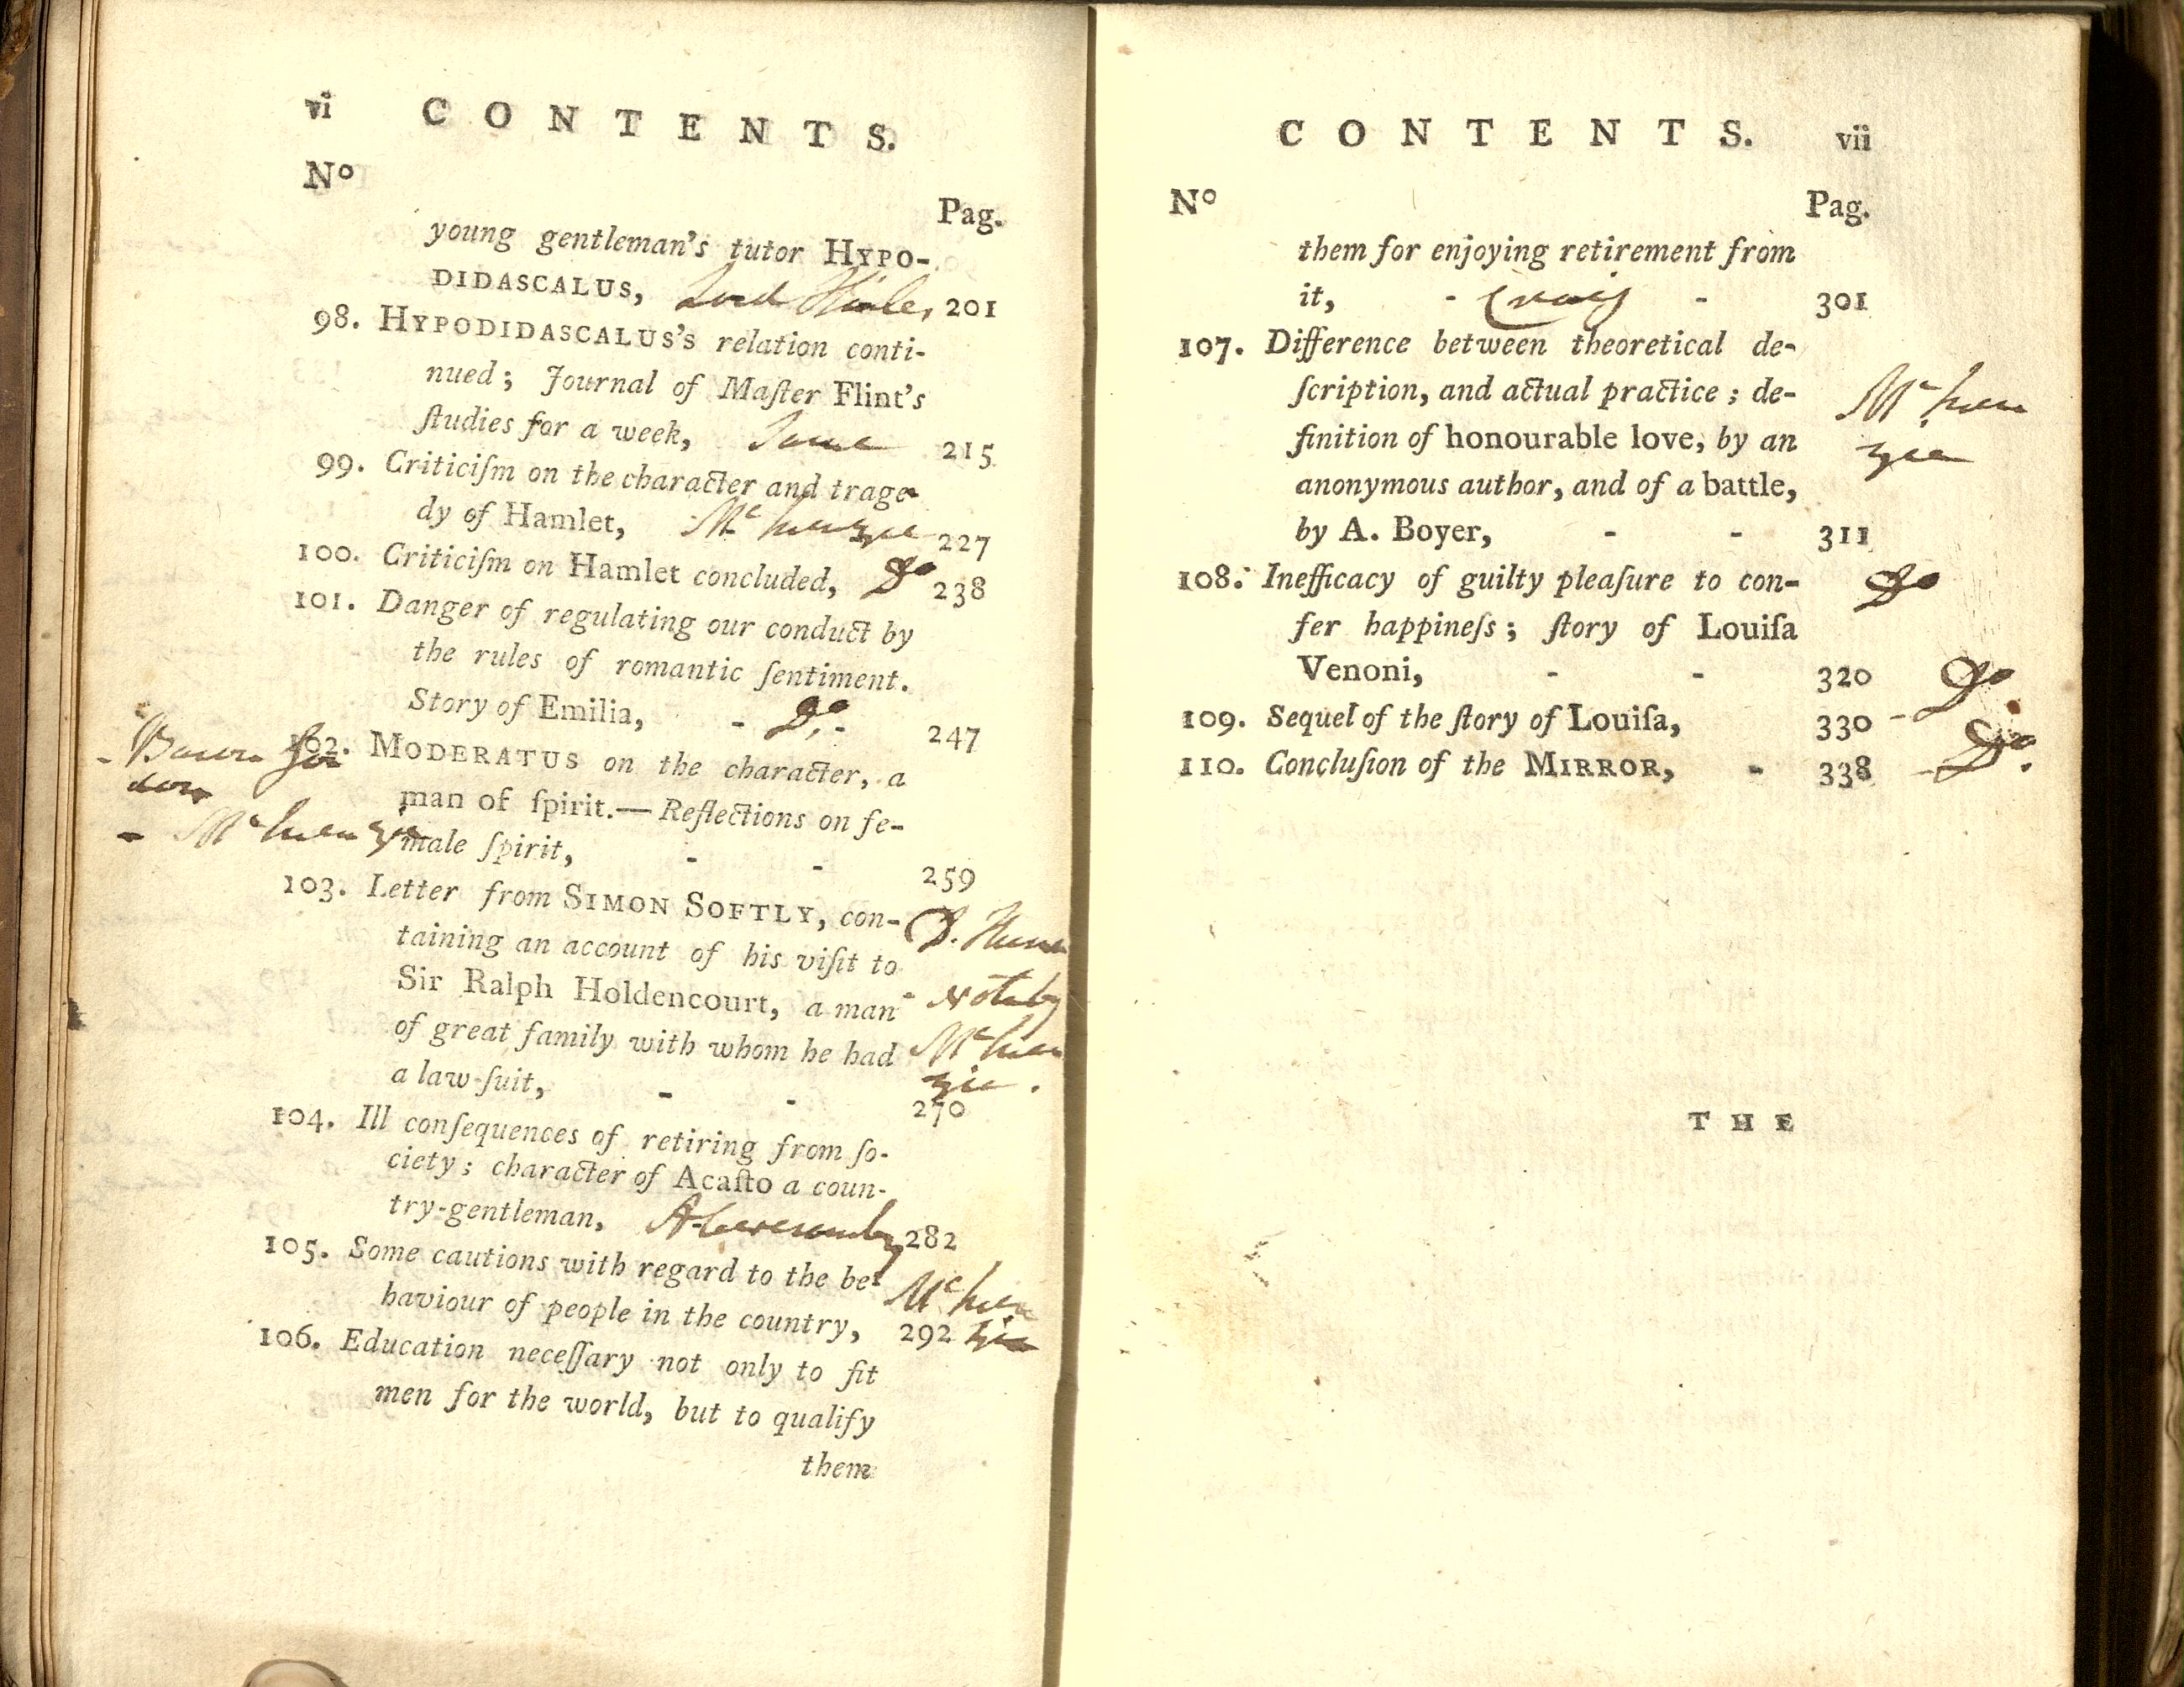 vi CONTENTS.
Nº
Pag.
young gentleman's tutor HYPO-
DIDASCALUS, Lord Hailes 201
98. HYPODIDASCALUS's relation conti-
nued; Journal of Maſter Flint's
ſtudies for a week, Same 215
99. Criticiſm on the character and trage-
dy of Hamlet, McKenzie 227
100. Criticiſm on Hamlet concluded, Do 238
101. Danger of regulating our conduct by
the rules of romantic ſentiment.
Story of Emilia, - Do. - 247
- Baron Gor
don
102. MODERATUS on the character, a
man of ſpirit.—Reflections on fe-
- McKenzie
male ſpirit, - - 259
103. Letter from SIMON SOFTLY, con-
taining an account of his viſit to
Sir Ralph Holdencourt, a man
of great family with whom he had
a law-ſuit, - - 270
D. Hume
Note by
McKen
zie.
104. Ill conſequences of retiring from ſo-
ciety; character of Acaſto a coun-
try-gentleman, Abercromby 282
105. Some cautions with regard to the be-
haviour of people in the country, 292
McKen
zie
106. Education neceſſary not only to fit
men for the world, but to qualify
them
CONTENTS. vii
Nº Pag.
them for enjoying retirement from
it, - Craig - 301
107. Difference between theoretical de-
ſcription, and actual practice; de-
finition of honourable love, by an
anonymous author, and of a battle,
by A. Boyer, - - 311
McKen
zie
108. Inefficacy of guilty pleaſure to con- Do
fer happineſs; ſtory of Louiſa
Venoni, - - 320
109. Sequel of the ſtory of Louiſa, 330 - Do
110. Concluſion of the MIRROR, - 338 - Do.
THE